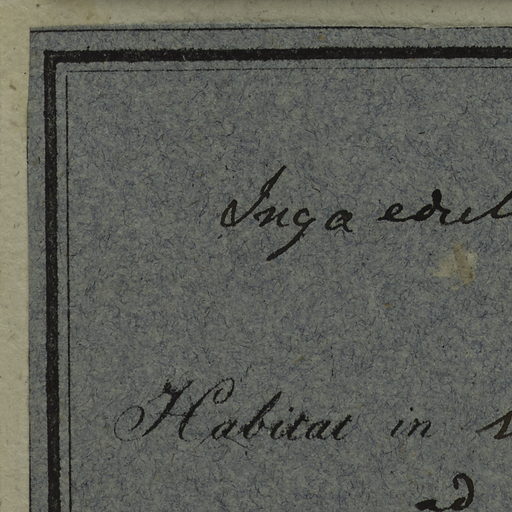 Inga edul
Habitat in
ad